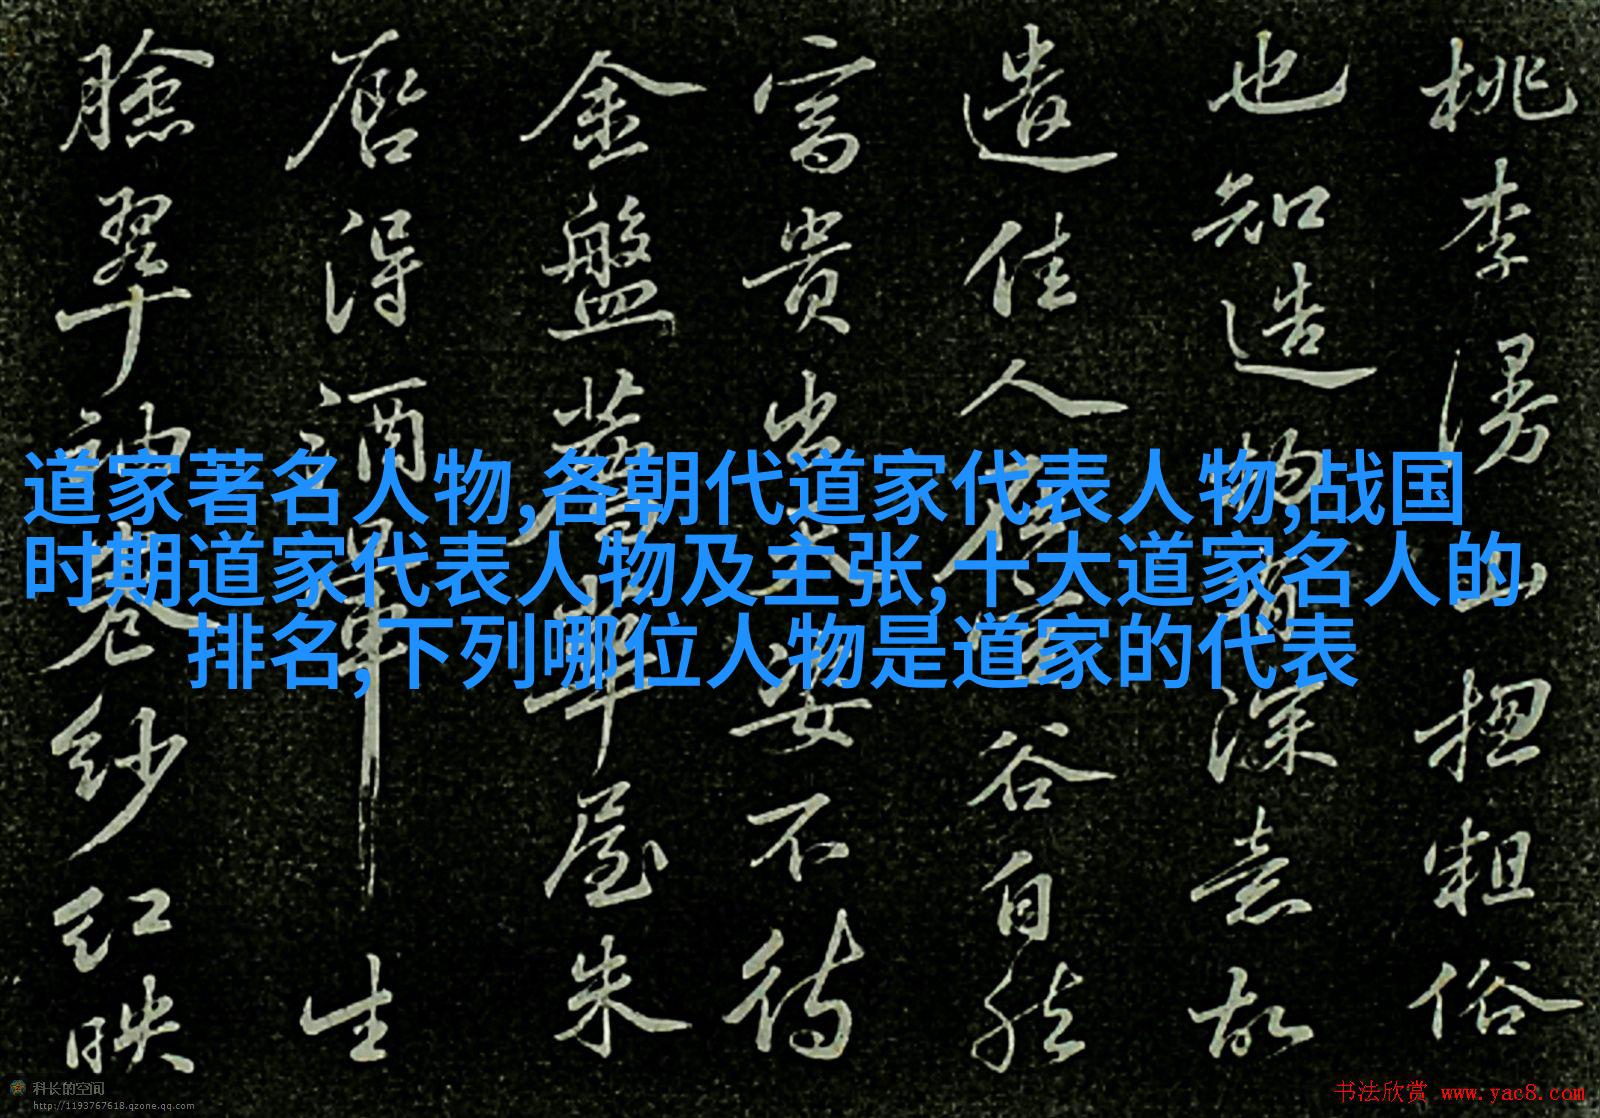 桃李漫山揔粗俗
也知造物有深意故
遣佳人在空谷自然
富貴出天姿不待
金盤薦華屋朱
唇得酒暈生
臉翠袖卷紗紅映
道家著名人物,各朝代道家代表人物,战国
时期道家代表人物及主张,十大道家名人的
排名,下列哪位人物是道家的代表
科长的空间
http://1193767618.qzone.qq.com
书法欣赏 www.yac8.com